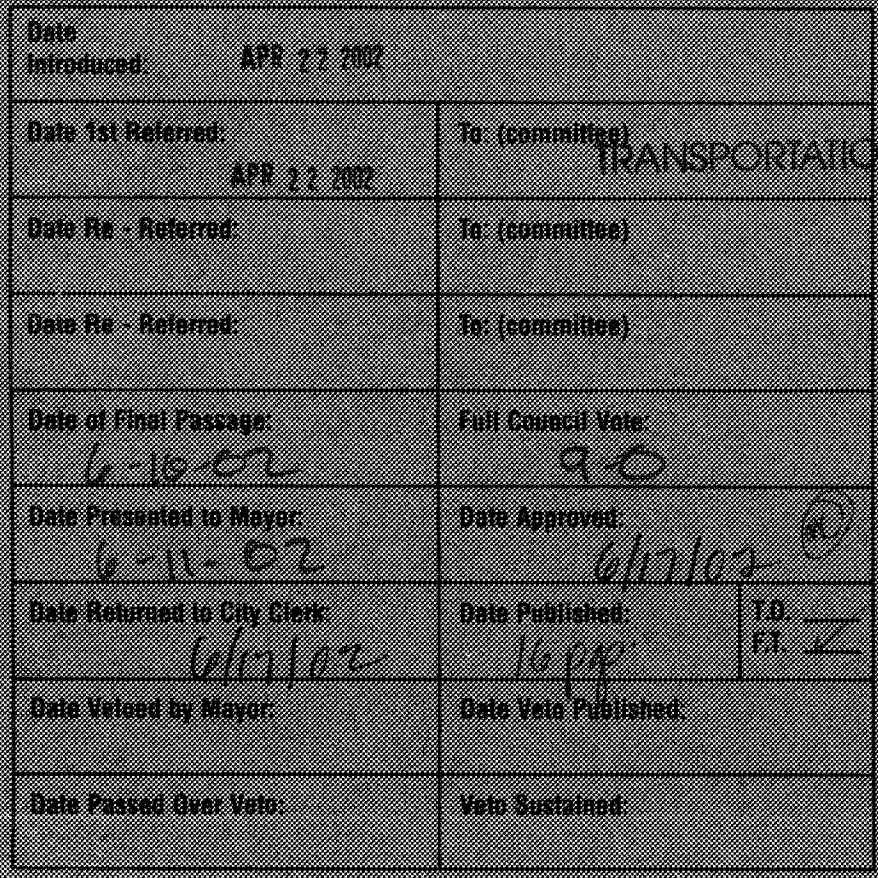 Date
Introduced: APR 22 2002
Date 1st Referred: APR 22 2002
To: (committee) TRANSPORTATIO
Date Re - Referred:
To: (committee)
Date Re - Referred:
To: (committee)
Date of Final Passage: 6-10-02
Full Council Vote: 9-0
Date Presented to Mayor: 6-11-02
Date Approved: 6/17/02
Date Returned to City Clerk: 6/17/02
Date Published: 16 pgs
T.O.
F.T. ✓
Date Vetoed by Mayor:
Date Veto Published:
Date Passed Over Veto:
Veto Sustained: